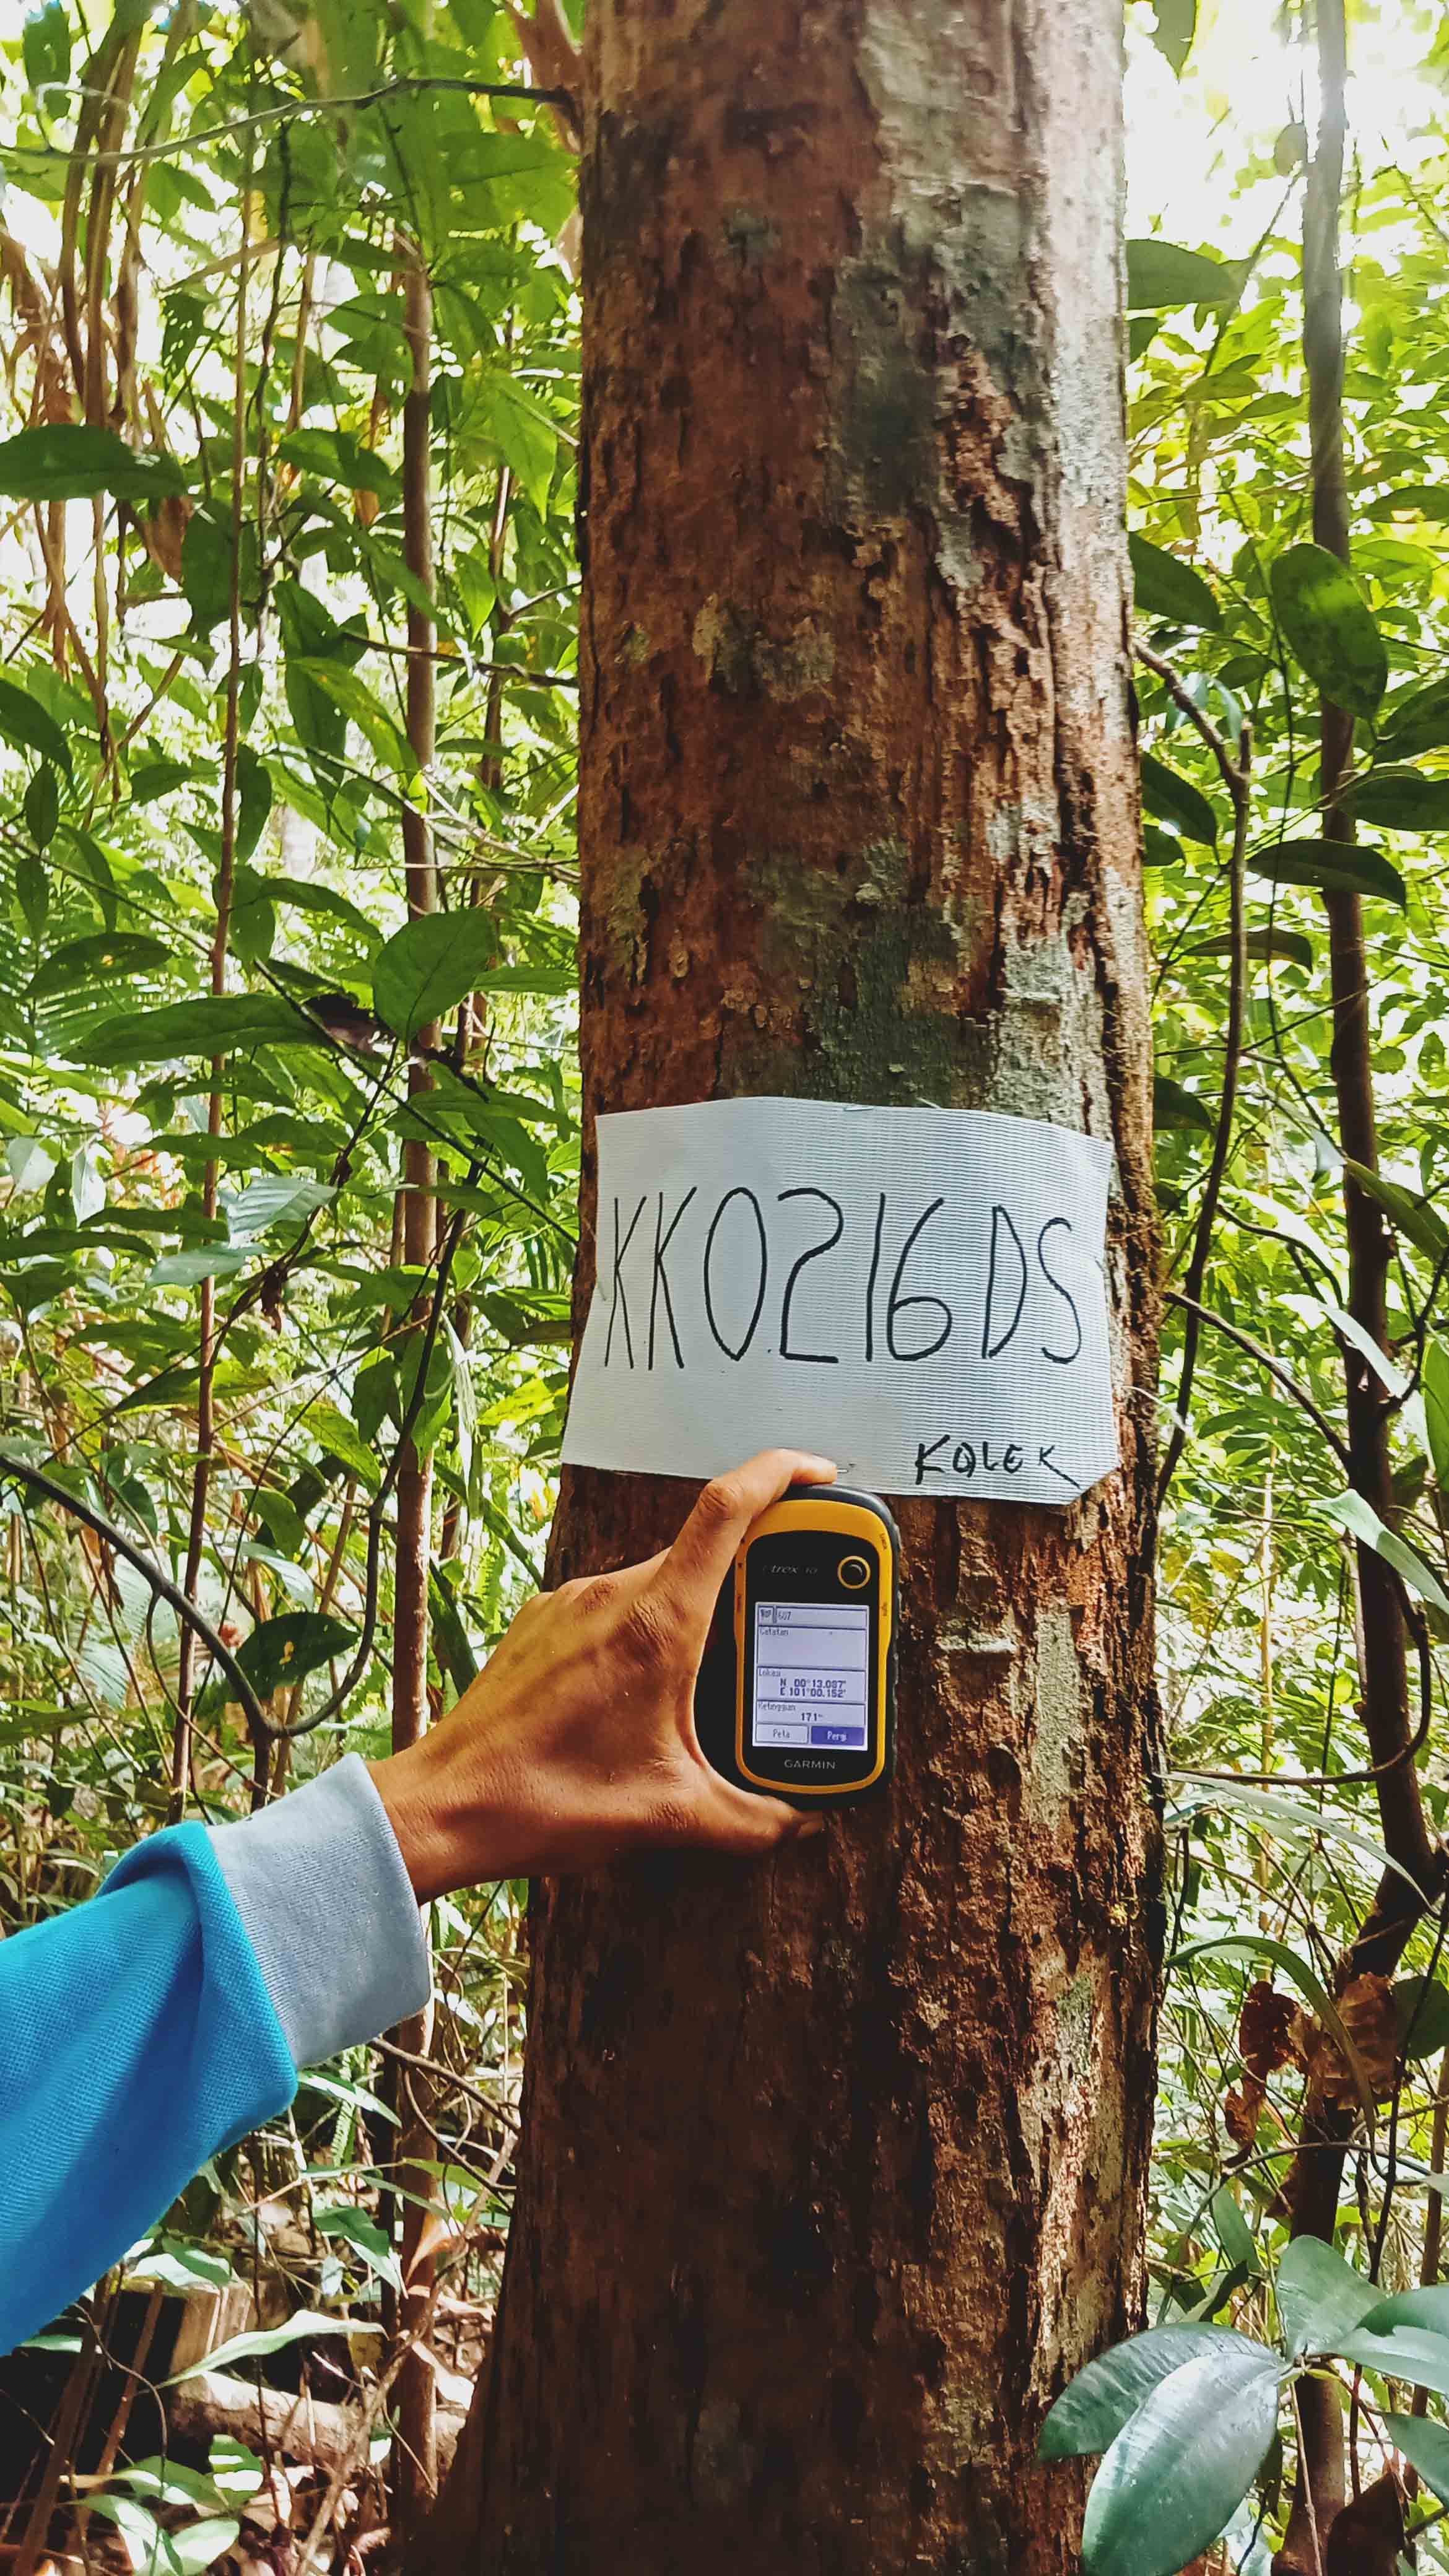 KK0216DS
KOLEK
etrex 10
607
Catatan
Lokasi
N 00°13.087'
E 101°00.152'
Ketinggian
171m
Peta Pergi
GARMIN